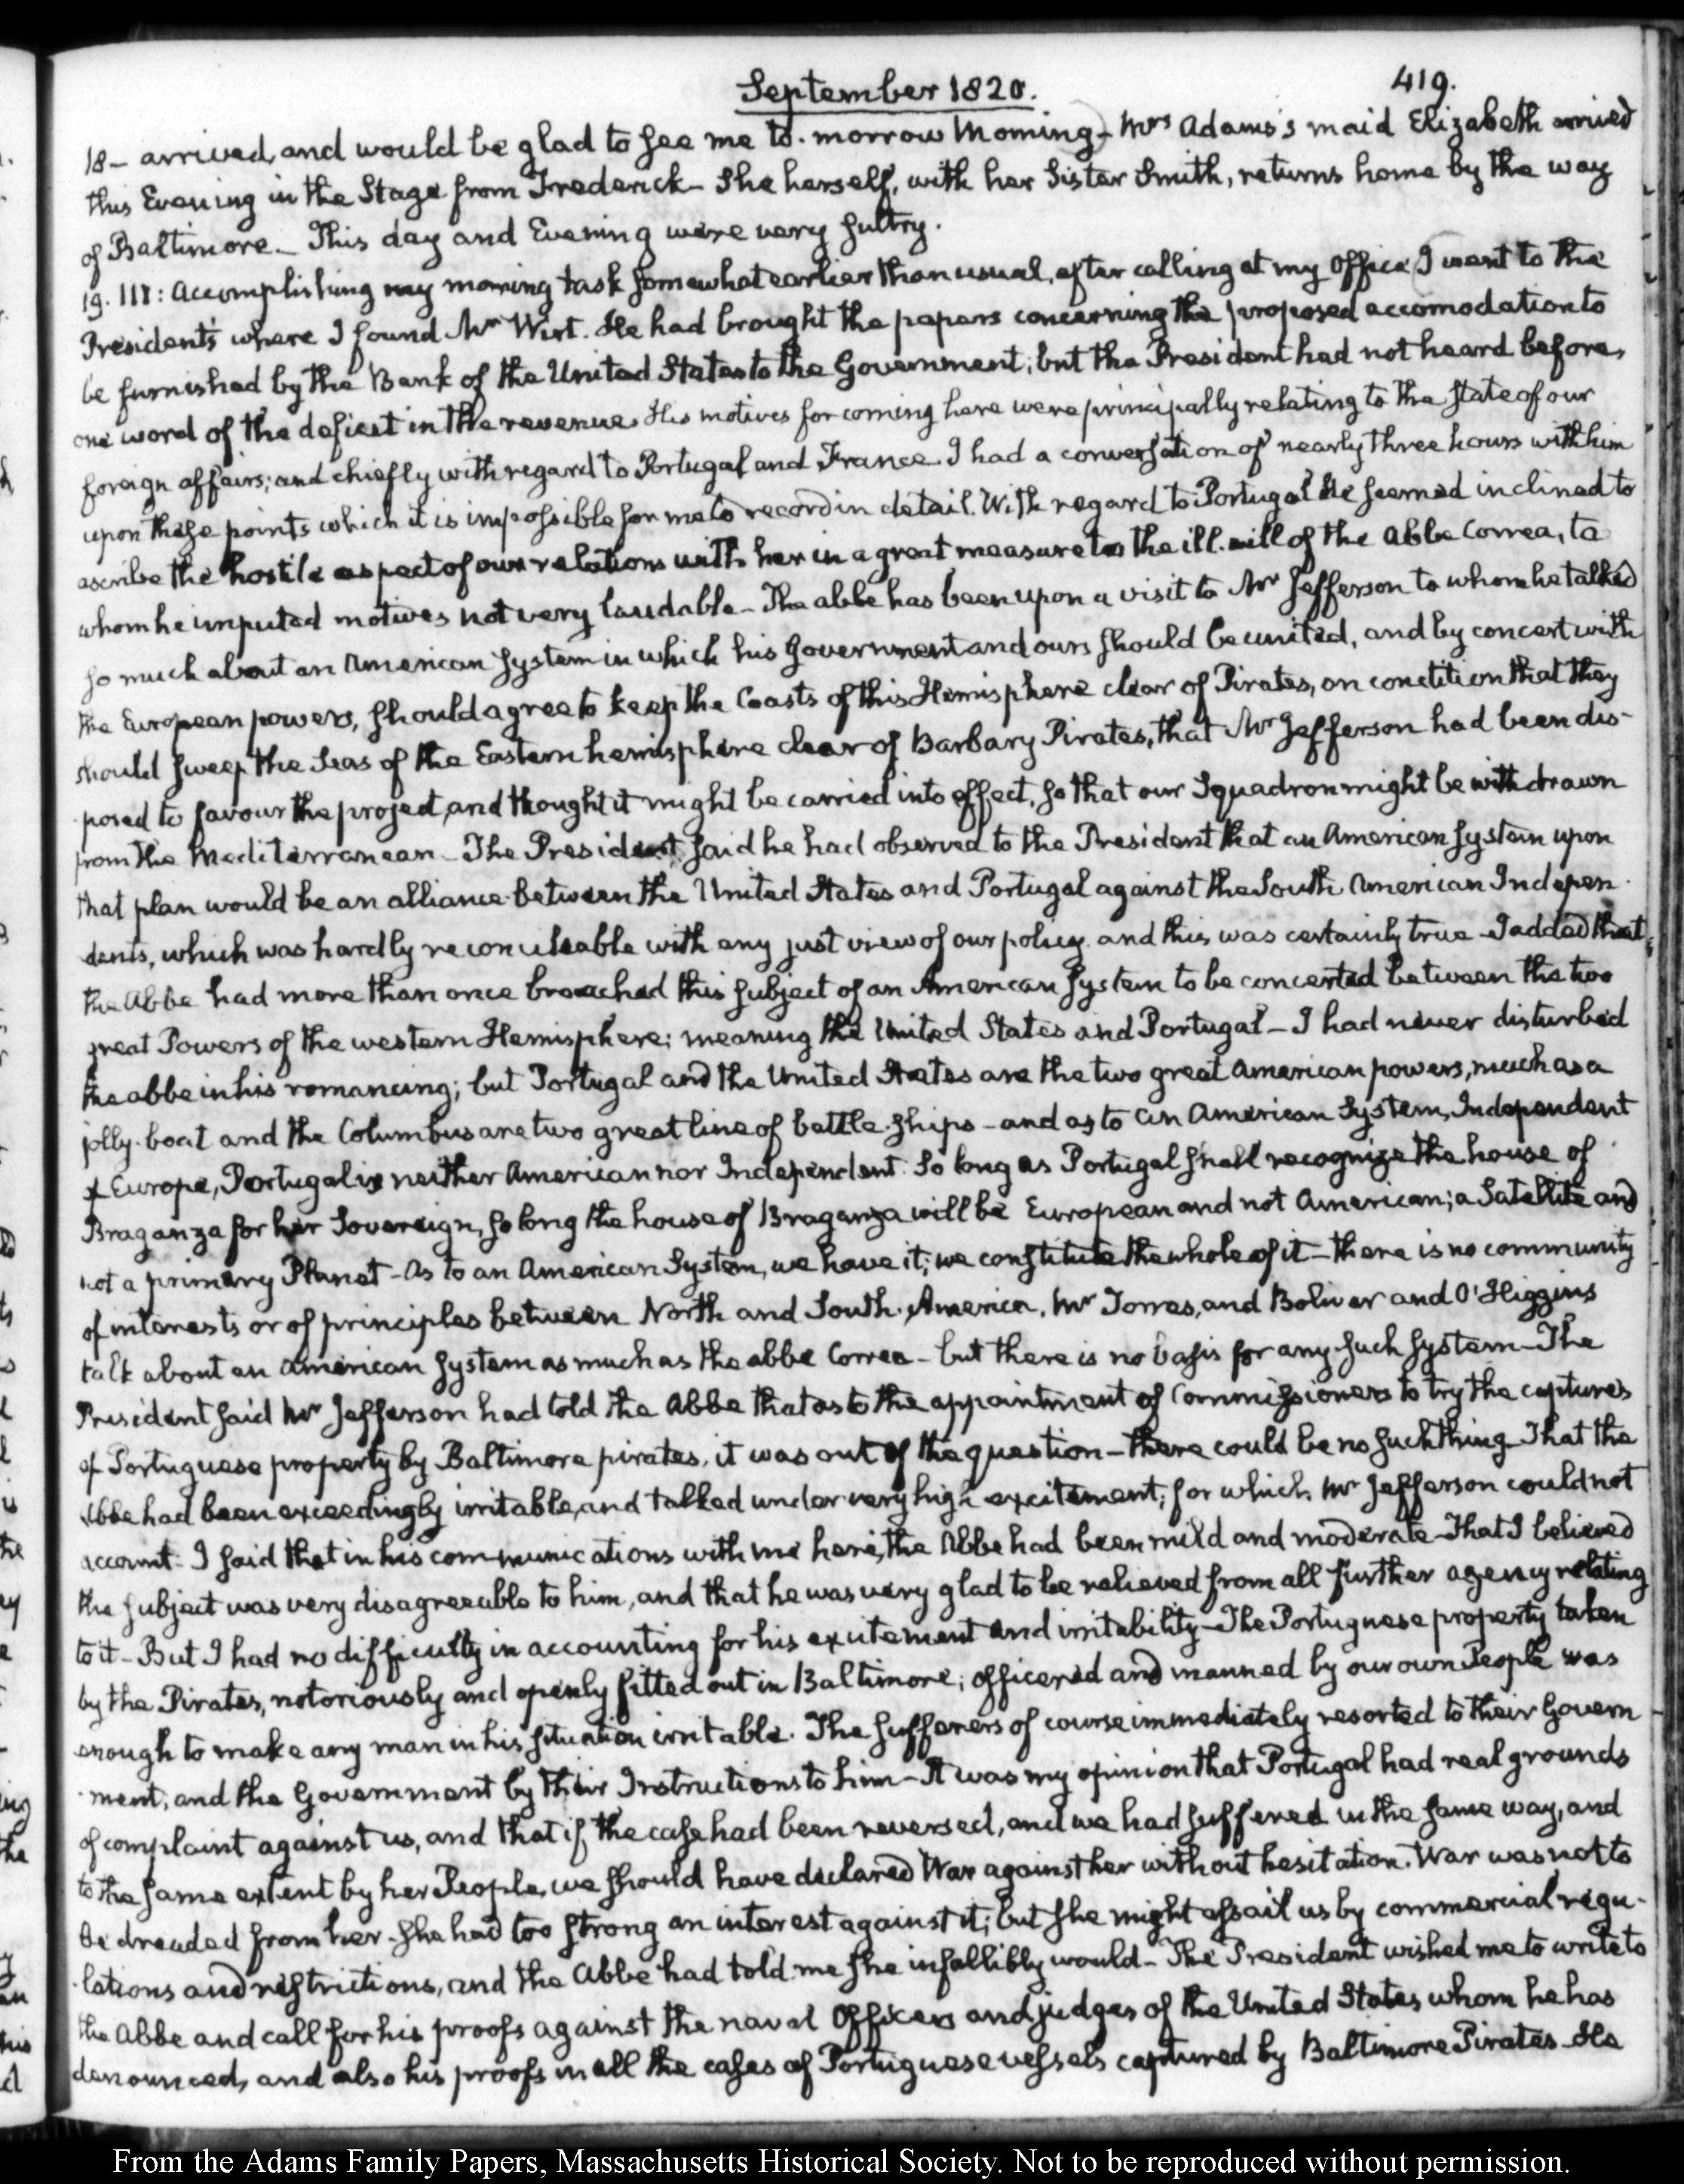 September 1820.
419.
18 — arrived, and would be glad to see me to-morrow Morning — Mrs Adams's maid Elizabeth arrived
this Evening in the Stage from Frederick — She herself, with her Sister Smith, returns home by the way
of Baltimore — This day and Evening were very sultry.
19. III: Accomplishing my morning task somewhat earlier than usual, after calling at my Office I went to the
President's where I found Mr Wirt. He had brought the papers concerning the proposed accomodation to
be furnished by the Bank of the United States to the Government; but the President had not heard before,
one word of the deficit in the revenue. His motives for coming here were principally relating to the state of our
foreign affairs; and chiefly with regard to Portugal and France. I had a conversation of nearly three hours with him
upon these points which it is impossible for me to record in detail. With regard to Portugal He seemed inclined to
ascribe the hostile aspect of our relations with her in a great measure to the ill-will of the Abbe Correa, to
whom he imputed motives not very laudable — The abbe has been upon a visit to Mr Jefferson to whom he talked
so much about an American System in which his Government and ours should be united, and by concert with
the European powers, should agree to keep the Coasts of this Hemisphere clear of Pirates, on condition that they
should sweep the Seas of the Eastern hemisphere clear of Barbary Pirates, that Mr Jefferson had been dis-
posed to favour the project, and thought it might be carried into effect, so that our Squadron might be withdrawn
from the Mediterranean — The President said he had observed to the President that an American System upon
that plan would be an alliance between the United States and Portugal against the South American Indepen-
dents, which was hardly reconcileable with any just view of our policy and this was certainly true — I added that
the Abbe had more than once broached this subject of an American System to be concerted between the two
great Powers of the western Hemisphere; meaning the United States and Portugal — I had never disturbed
the abbe in his romancing; but Portugal and the United States are the two great American powers, much as a
jolly-boat and the Columbus are two great line of battle ships — and as to an American System, Independent
of Europe, Portugal is neither American nor Independent. So long as Portugal shall recognize the house of
Braganza for her Sovereign, so long the house of Braganza will be European and not American; a Satellite and
not a primary Planet — As to an American System, we have it; we constitute the whole of it — there is no community
of interests or of principles between North and South America. Mr Torres, and Bolivar and O'Higgins
talk about an American System as much as the abbe Correa — but there is no basis for any such system — The
President said Mr Jefferson had told the Abbe that as to the appointment of Commissioners to try the captures
of Portuguese property by Baltimore pirates, it was out of the question — there could be no such thing — That the
Abbe had been exceedingly irritable, and talked under very high excitement, for which Mr Jefferson could not
account. I said that in his communications with me here, the Abbe had been mild and moderate — That I believed
the subject was very disagreeable to him, and that he was very glad to be relieved from all further agency relating
to it — But I had no difficulty in accounting for his excitement and irritability — The Portuguese property taken
by the Pirates, notoriously and openly fitted out in Baltimore; officered and manned by our own People was
enough to make any man in his situation irritable. The sufferers of course immediately resorted to their Govern-
ment, and the Government by their Instructions to him — It was my opinion that Portugal had real grounds
of complaint against us, and that if the case had been reversed, and we had suffered in the same way, and
to the same extent by her People, we should have declared War against her without hesitation. War was not to
be dreaded from her. She had too strong an interest against it; but she might assail us by commercial regu-
lations and restrictions, and the Abbe had told me she infallibly would — The President wished me to write to
the Abbe and call for his proofs against the naval Officers and judges of the United States whom he has
denounced, and also his proofs in all the cases of Portuguese vessels captured by Baltimore Pirates — He
From the Adams Family Papers, Massachusetts Historical Society. Not to be reproduced without permission.